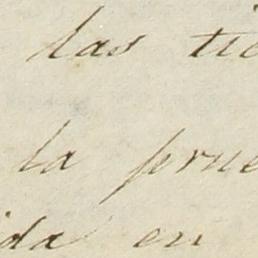 las tie
la prue
ida en